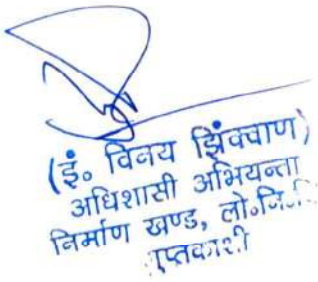 (इं० विनय झिंक्वाण)
अधिशासी अभियन्ता
निर्माण खण्ड, लो०नि०वि०
गुप्तकाशी